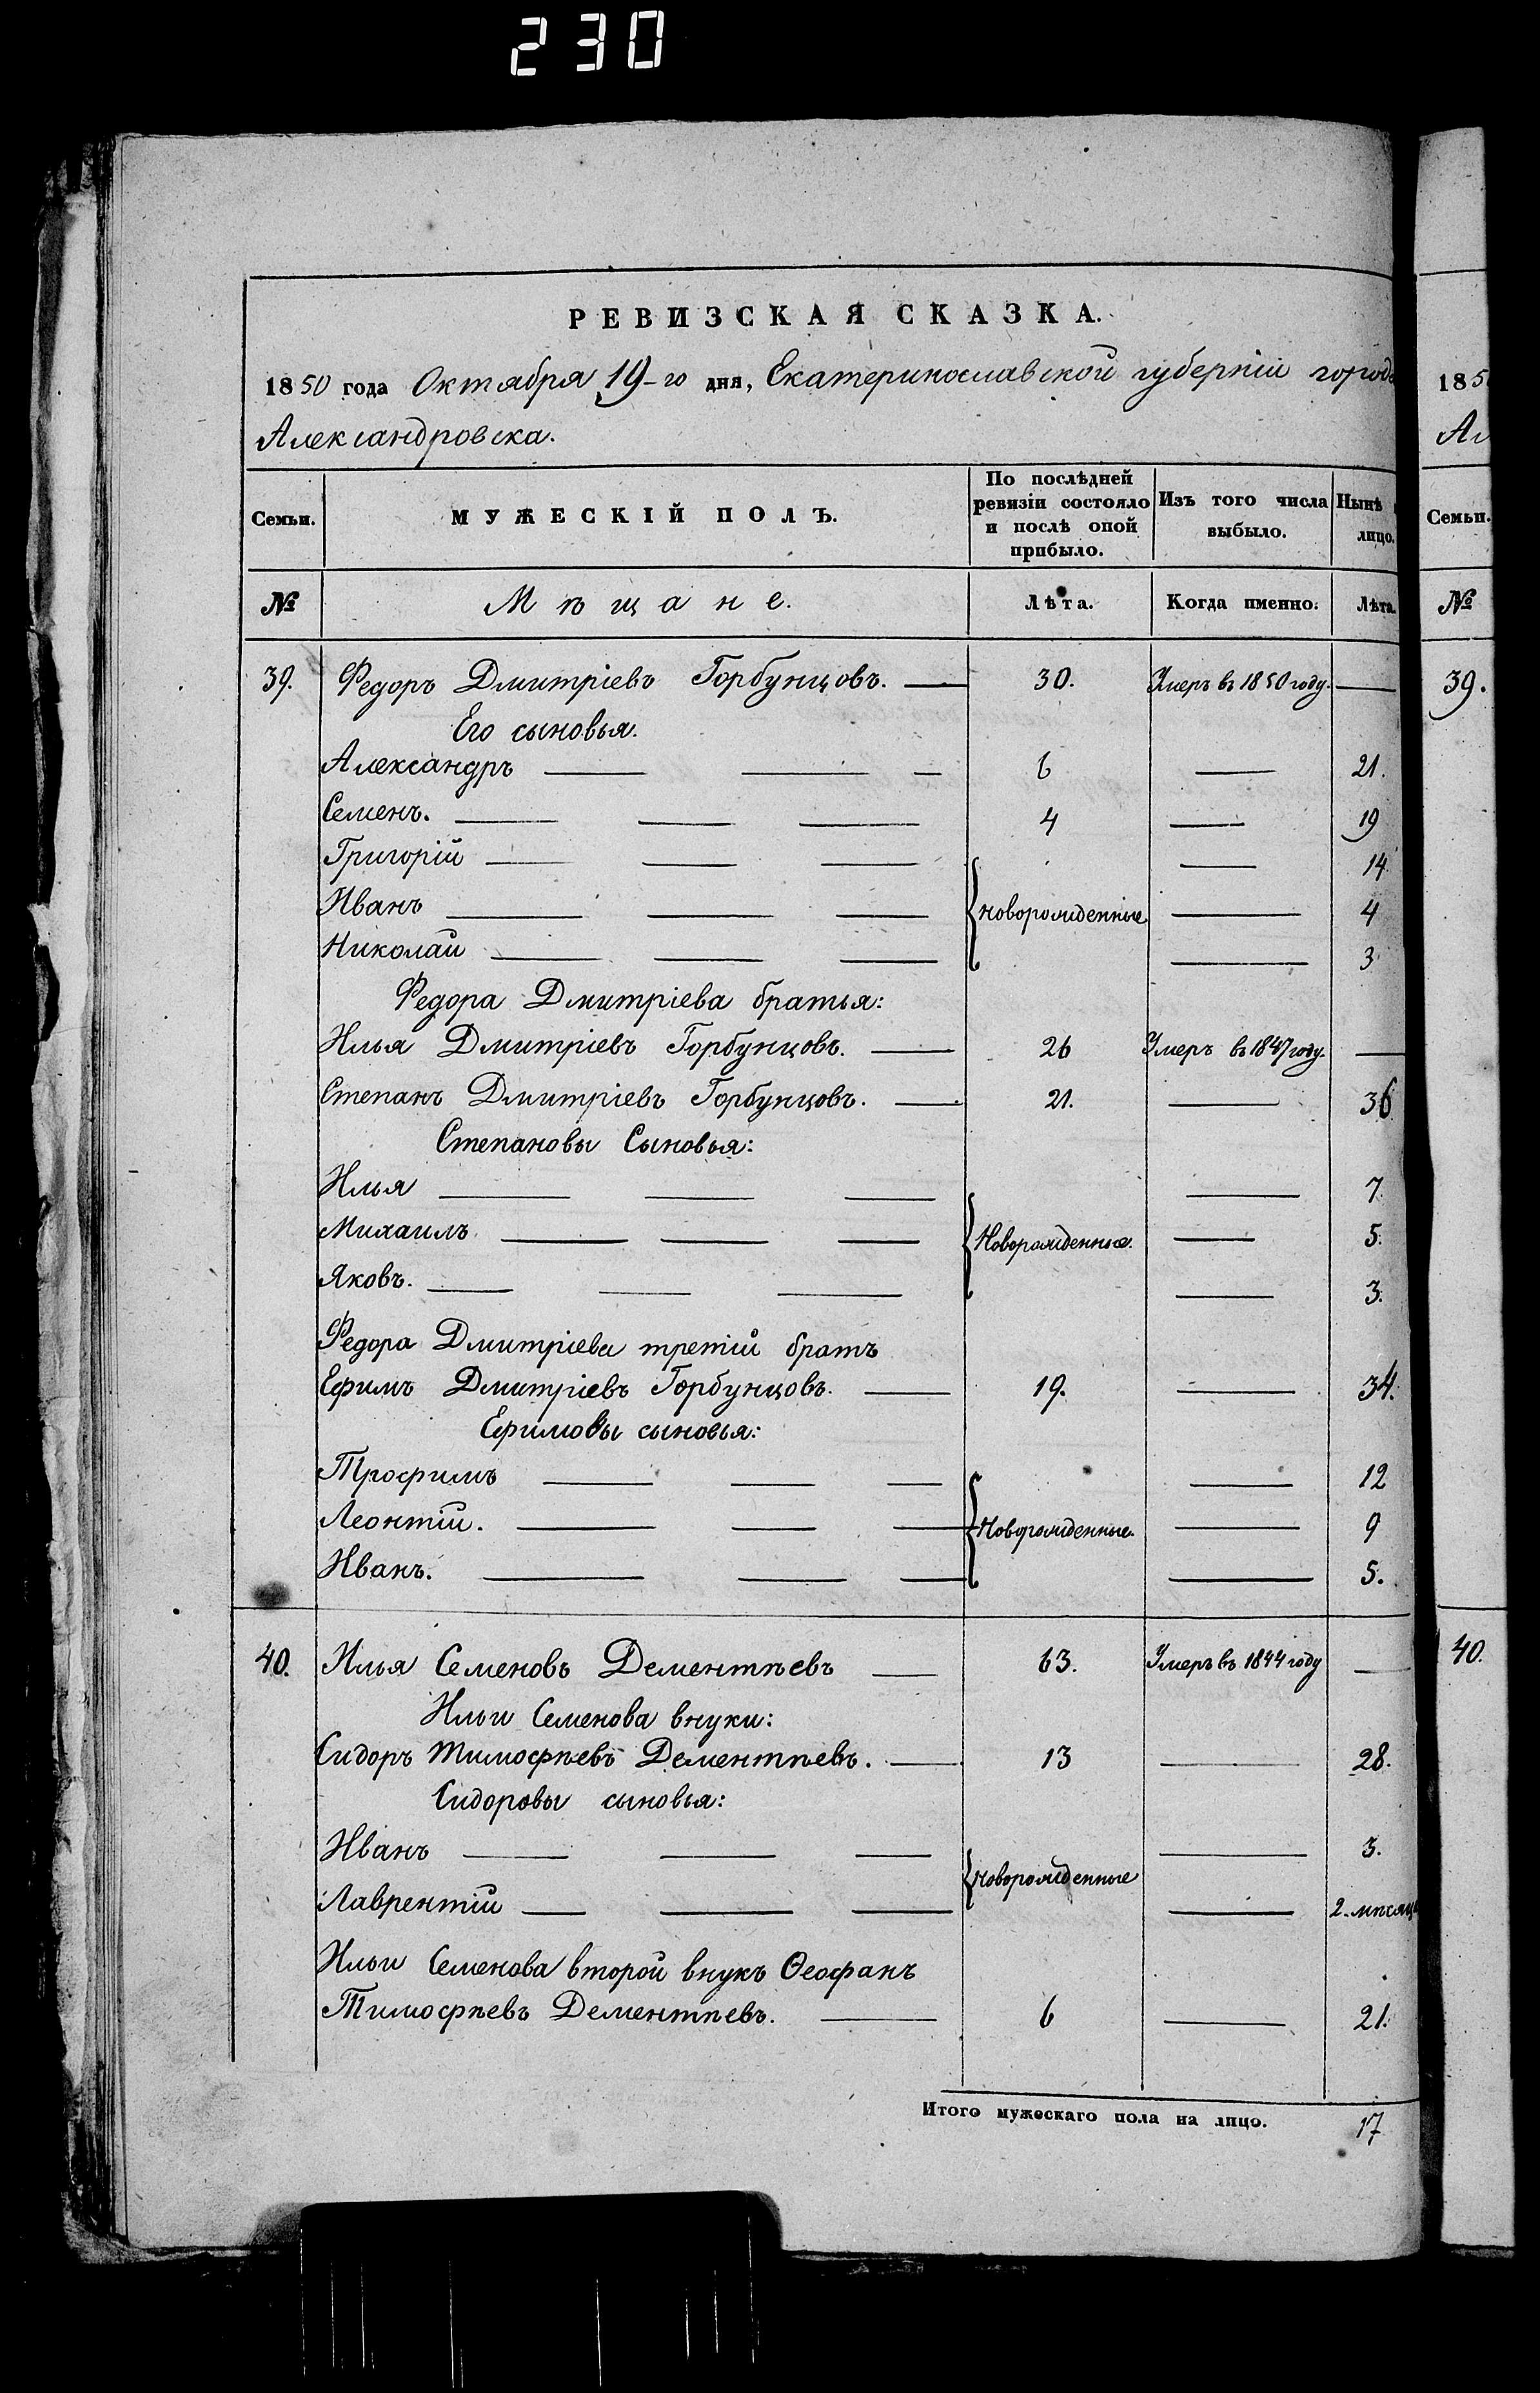 230
РЕВИЗСКАЯ СКАЗКА.
1850 года Октября 19-го дня, Екатеринославской губерніи города
Александровска.
Семьи. МУЖЕСКІЙ ПОЛЪ. По послѣдней ревизіи состояло и послѣ оной прибыло. Изъ того числа выбыло. Нынѣ лицо.
№ Мѣщане. Лѣта. Когда именно. Лѣта.
39. Федоръ Дмитріевъ Горбунцовъ. — 30. Умеръ въ 1850 году. —
Его сыновья.
Александръ — — — 6 — 21.
Семенъ. — — — 4 — 19
Григорій — — — — 14
Иванъ — — — новорожденные — 4
Николай — — — — 3
Федора Дмитріева братья:
Илья Дмитріевъ Горбунцовъ. — 26 Умеръ въ 1847 году. —
Степанъ Дмитріевъ Горбунцовъ. — 21. — 36
Степановы Сыновья:
Илья — — — — 7.
Михаилъ. — — — Новорожденные. — 5.
Яковъ. — — — — 3.
Федора Дмитріева третій братъ
Ефимъ Дмитріевъ Горбунцовъ. — 19. — 34.
Ефимовы сыновья:
Трофимъ — — — — 12
Леонтій. — — — Новорожденные. — 9
Иванъ. — — — — 5.
40. Илья Семеновъ Дементѣевъ — 63. Умеръ въ 1844 году —
Ильи Семенова внуки:
Сидоръ Тимофѣевъ Дементѣевъ. — 13 — 28.
Сидоровы сыновья:
Иванъ — — — новорожденные — 3.
Лаврентій — — — — 2. мѣсяца
Ильи Семенова второй внукъ Ѳеофанъ
Тимофѣевъ Дементѣевъ. — 6 — 21.
Итого мужескаго пола на лицо. 17
185
Семьи.
№
39.
40.